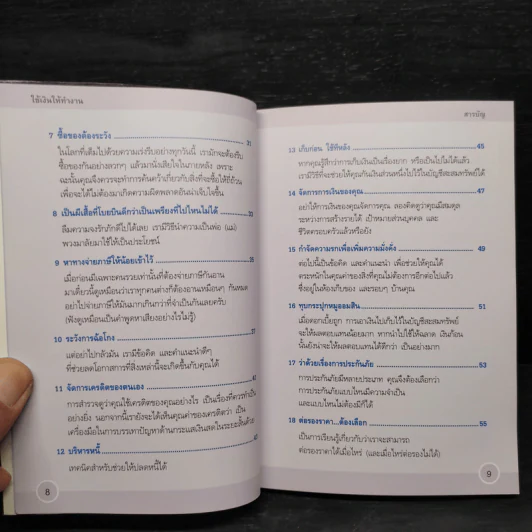 ใช้เงินให้ทำงาน
7 ซื้อของต้องระวัง 31
ในโลกที่เต็มไปด้วยความเร่งรีบอย่างทุกวันนี้ เรามักจะต้องรีบ
ซื้อของกันอย่างลวกๆ แล้วมานั่งเสียใจในภายหลัง เพราะ
ฉะนั้นคุณจึงควรจะทำการค้นคว้าเกี่ยวกับสิ่งที่จะซื้อให้ถี่ถ้วน
เพื่อจะได้ไม่ต้องมาเกิดความผิดพลาดอันน่าเจ็บใจขึ้น
8 เป็นผีเสื้อที่โบยบินดีกว่าเป็นเพรียงที่ไปไหนไม่ได้ 33
ลืมความจงรักภักดีไปได้เลย เรามีวิธีนำความเป็นพ่อ (แม่)
พวงมาลัยมาใช้ให้เป็นประโยชน์
9 หาทางจ่ายภาษีให้น้อยเข้าไว้ 35
เมื่อก่อนมีเฉพาะคนรวยเท่านั้นที่ต้องจ่ายภาษีกันอาน
มาเดี๋ยวนี้ดูเหมือนว่าเราทุกคนต่างก็ต้องอานเหมือนๆ กันหมด
อย่าไปจ่ายภาษีให้มันมากเกินกว่าที่จำเป็นกันเลยครับ
(ฟังดูเหมือนเป็นคำพูดหาเสียงอย่างไรไม่รู้)
10 ระวังการฉ้อโกง
แต่อย่าไปกลัวมัน เรามีข้อคิด และคำแนะนำดีๆ
ที่ช่วยลดโอกาสการที่สิ่งเหล่านี้จะเกิดขึ้นกับคุณได้
11 จัดการเครดิตของตนเอง
การสำรวจดูว่าคุณใช้เครดิตของคุณอย่างไร เป็นเรื่องที่ควรทำเป็น
อย่างยิ่ง นอกจากนี้เรายังจะได้เห็นคุณค่าของเครดิตว่า เป็น
เครื่องมือในการบรรเทาปัญหาด้านกระแสเงินสดในระยะสั้นด้วย
12 บริหารหนี้
เทคนิคสำหรับช่วยให้ปลดหนี้ได้
8
สารบัญ
13 เก็บก่อน ใช้ทีหลัง 45
หากคุณรู้สึกว่าการเก็บเงินเป็นเรื่องยาก หรือเป็นไปไม่ได้แล้ว
เรามีวิธีที่จะช่วยให้คุณกันเงินส่วนหนึ่งไปไว้ในบัญชีสะสมทรัพย์ได้
14 จัดการการเงินของคุณ 47
อย่าให้การเงินของคุณจัดการคุณ ลองคิดดูว่าคุณมีสมดุล
ระหว่างการสร้างรายได้ เป้าหมายส่วนบุคคล และ
ชีวิตครอบครัวแล้วหรือยัง
15 กำจัดความรกเพื่อเพิ่มความมั่งคั่ง 49
ต่อไปนี้เป็นข้อคิด และคำแนะนำ เพื่อช่วยให้คุณได้
ตระหนักในคุณค่าของสิ่งที่คุณไม่ต้องการอีกต่อไปแล้ว
ซึ่งอยู่ในห้องเก็บของ และรอบๆ บ้านคุณ
16 ทุบกระปุกหมูออมสิน 51
เมื่อดอกเบี้ยถูก การเอาเงินไปเก็บไว้ในบัญชีสะสมทรัพย์
จะให้ผลตอบแทนน้อยมาก หากนำไปใช้ให้ฉลาด เงินก้อน
นั้นยังน่าจะให้ผลตอบแทนได้ดีกว่า เป็นอย่างมาก
17 ว่าด้วยเรื่องการประกันภัย 53
การประกันภัยมีหลายประเภท คุณจึงต้องเลือกว่า
การประกันภัยแบบไหนมีความจำเป็น
และแบบไหนไม่ต้องมีก็ได้
18 ต่อรองราคา...ต้องเลือก 55
เป็นการเรียนรู้เกี่ยวกับว่าเราจะสามารถ
ต่อรองราคาได้เมื่อไหร่ (และเมื่อไหร่ต่อรองไม่ได้)
9